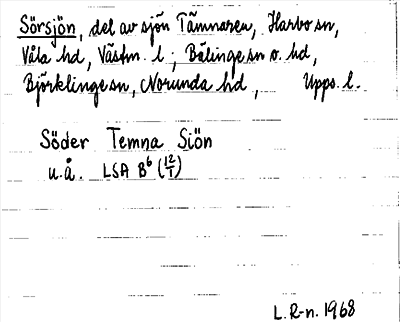 Sörsjön, del av sjön Tämnaren, Harbo sn,
Våla hd, Västm. l.; Bälinge sn o. hd,
Björklinge sn, Norunda hd, Upps. l.
Söder Temna Siön
u.å. LSA B⁶ (12/1)
L. R-n. 1968